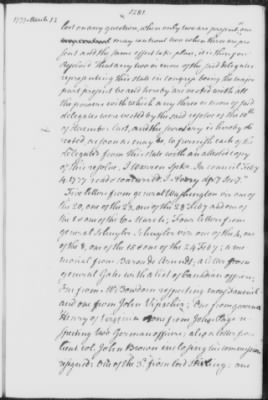 1281
1777 March 12
lost on any question, when only two are present, on
may cast but two when three are pre
sent and the same effect take place, it is therefore
Resolved That any two or more of the said delegates
representing this state in congress being the major
part present be and hereby are vested with all
the powers with which any three or more of said
delegates were vested by the said resolve of the 10th
of December last, and the secretary is hereby di
rected, as soon as may be, to furnish each of his
delegates from this state with an attested copy
of this resolve. J Warren Spkr. In council Feby
4. 1777 read & concurred J Avery dpy Secy
Five letters from general Washington viz one of
the 20, one of the 23, one of the 28 Feby and one of
the 1 & one of the 6 March; Four letters from
general Schuyler viz one of the 4, one
of the 8, one of the 15 & one of the 24 Feby; a me
morial from Baron de Arendt, a letter from
general Gates with a list of Canadian officers;
One from Mr Bowdoin respecting
and one from John ; One from governor
Henry of Virginia & one from John Page re
specting two German officers; also a letter from
lieut col. John Brown enclosing his commission
resigned; One of the 3d from lord Stirling; one